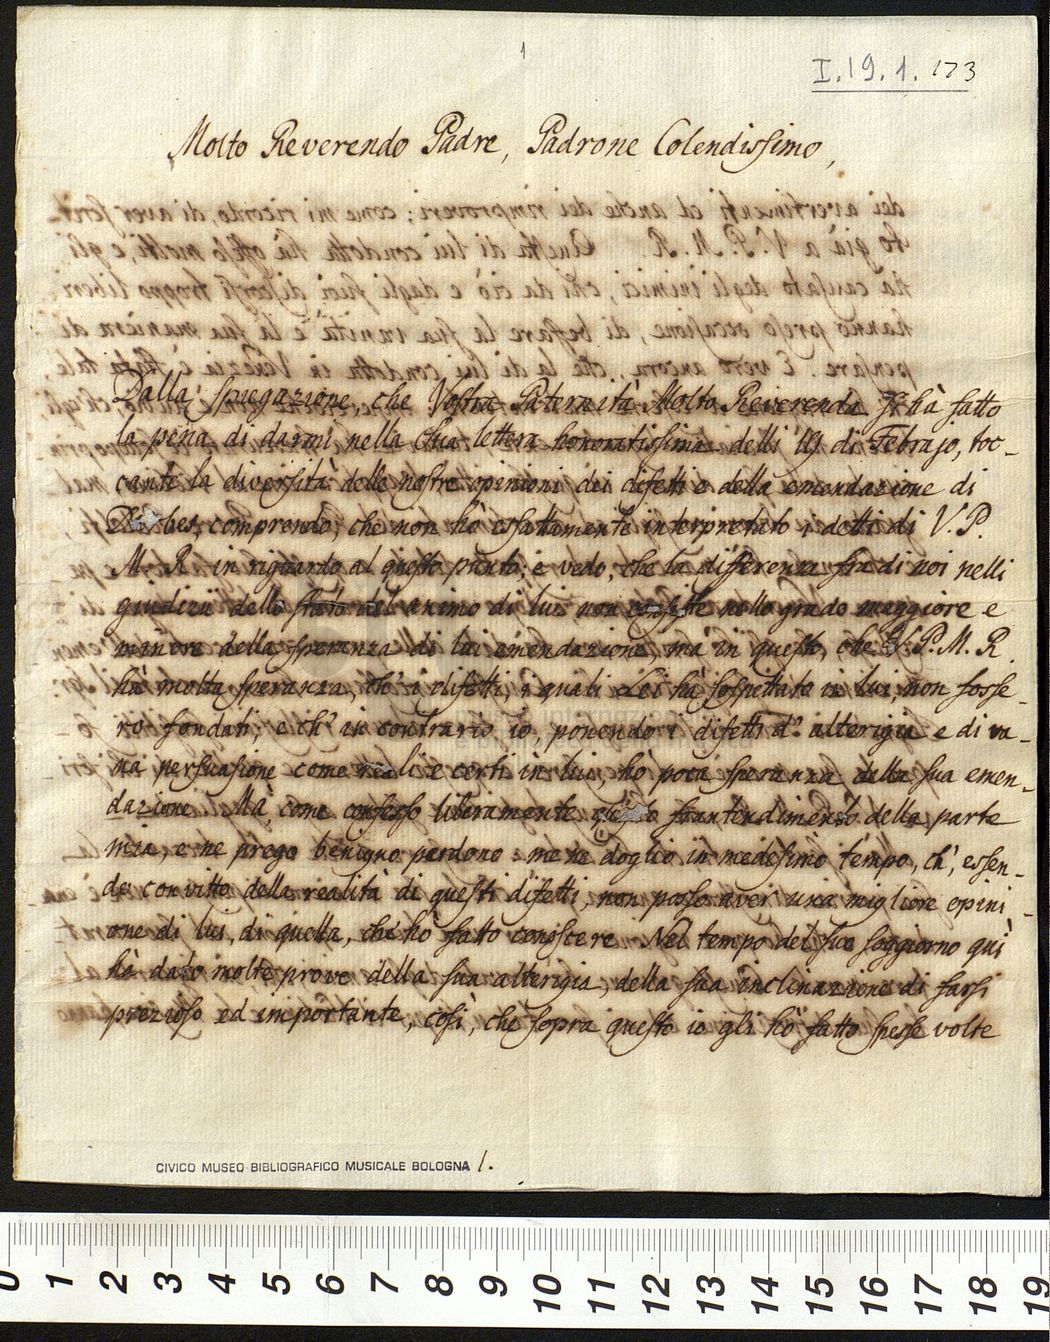 1
I.19.1.173
Molto Reverendo Padre, Padrone Colendissimo,
Dalla spiegazione, che Vostra Paternità Molto Reverenda hà fatto
la pena di darmi nella Sua lettera honoratissima delli di Febrajo, toc-
cante la diversità delle nostre opinioni dei difetti e della emendazione di
comprendo, che non hò esattamente interpretato i detti di V. P.
M. R. in riguardo al questo punto; e vedo, che la differenza fra di noi nelli
giudizii dello stato del animo di lui non consiste nello grado maggiore e
minore della speranza di lui emendazione, mà in questo, che V. P. M. R.
hà molta speranza, ch' i difetti, i quali Lei hà sospettato in lui, non fosse-
ro fondati; e ch' in contrario io ponendo i difetti d' alterigia e di va-
na persuasione come reali e certi in lui, hò poca speranza della sua emen-
dazione. Mà, come confesso liberamente questo frantendimento della parte
mia, e ne prego benigno perdono: me ne doglio in medesimo tempo, ch', essen-
do convitto della realità di questi difetti, non posso aver una migliore opini-
one di lui, di quella, che hò fatto conoscere. Nel tempo del suo soggiorno quì
hà dato molte prove della sua alterigia, della sua inclinazione di farsi
prezioso ed importante, così, che sopra questo io gli hò fatto spesse volte
CIVICO MUSEO BIBLIOGRAFICO MUSICALE BOLOGNA 1.
0 1 2 3 4 5 6 7 8 9 10 11 12 13 14 15 16 17 18 19